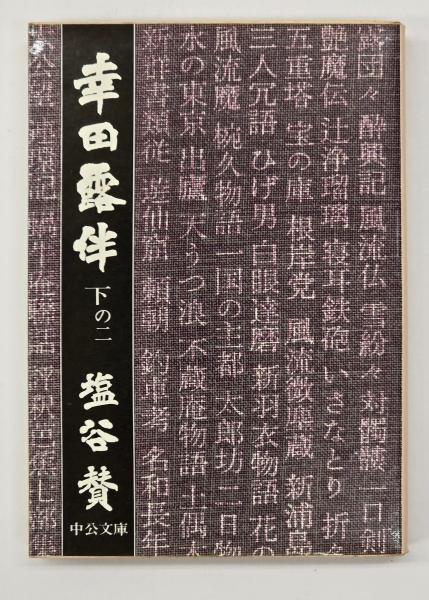 幸田露伴
下の二
塩谷賛
中公文庫
露団々 酔興記 風流仏 雪紛々 対髑髏 一口剣
艶魔伝 辻浄瑠璃 寝耳鉄砲 いさなとり 折々
五重塔 宝の庫 根岸党 風流微塵蔵 新浦島
二人冗語 ひげ男 白眼達磨 新羽衣物語 花の
風流魔 椀久物語 一国の主都 太郎坊 二日物
水の東京 出廬 天うつ浪 不蔵庵物語 土偶木
新群書類従 遊仙窟 頼朝 釣車考 名和長年